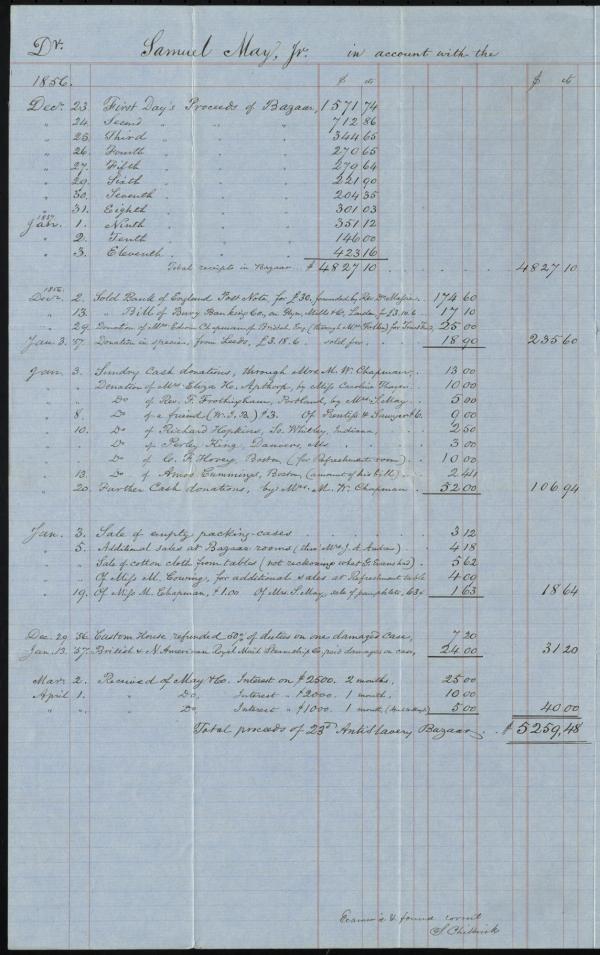 Dr. Samuel May, Jr. in account with the
1856. $ ct $ ct
Decr. 23 First Day's Proceeds of Bazaar, 1571 74
" 24. Second " " " 712 86
" 25. Third " " " 344 65
" 26. Fourth " " " 270 65
" 27. Fifth " " " 279 64
" 29. Sixth " " " 221 90
" 30. Seventh " " " 204 35
" 31. Eighth " " " 301 03
1857 Jan. 1. Ninth " " " 351 12
" 2. Tenth " " " 146 00
" 3. Eleventh " " " 423 16
Total receipts in Bazaar $ 4827 10 4827 10
1856. Decr. 2. Sold Bank of England Post Note, for £30, 174 60
" 13. " Bill of Bury Banking Co, on Glyn, Mills & Co, London, for £3.10.6 17 10
" 29. Donation of Mrs Edwin Chapman, of Bristol, Eng. (through 25 00
Jan 3. '57 Donation in specie, from Leeds, £3.18.6. sold for 18 90 235 60
Jan. 3. Sundry Cash donations, through Mrs M. W. Chapman, 13 00
" " Donation of Mrs Eliza H. Apthorp, by Miss Caroline Thayer. 10 00
" " Do of Rev. F. Frothingham, Portland, by Mrs S. May. 5 00
" 8. Do of a friend (W.I.B.) $3. Of Prentiss & Sawyer $6. 9 00
" 10. Do of Richard Hopkins, So. Whitley, Indiana, 2 50
" " Do of Perley King, Danvers, Ms. 3 00
" " Do of C. F. Hovey, Boston (for Refreshment room) 10 00
" 13. Do of Amos Cummings, Boston, (amount of his bill) 2 44
" 20. Further Cash donations, by Mrs. M. W. Chapman 52 00 106 94
Jan. 3. Sale of empty packing-cases 3 12
" 5. Additional sales at Bazaar rooms (thro' Mrs J. A. 4 18
" " Sale of cotton cloth from tables (not reckoning what G. Evans had) 5 62
" " Of Miss M. Cowing, for additional sales at Refreshment table 4 09
" 19. Of Miss M. Chapman, $1.00 Of Mrs. S. May, sale of pamphlets, 63c 1 63 18 64
Dec. 29 '56. Custom House refunded 50% of duties on one damaged case, 7 20
Jan. 13. '57. British & N. American Royal Mail Steamship Co. paid damages on case, 24 00 31 20
Mar. 2. Received of May & Co. Interest on $2500. 2 months. 25 00
April 1. " Do. Interest " $2000. 1 month. 10 00
" " " Do Interest " $1000. 1 month 5 00 40 00
Total proceeds of 23d Anti Slavery Bazaar. $ 5259,48
Examin'd & found correct